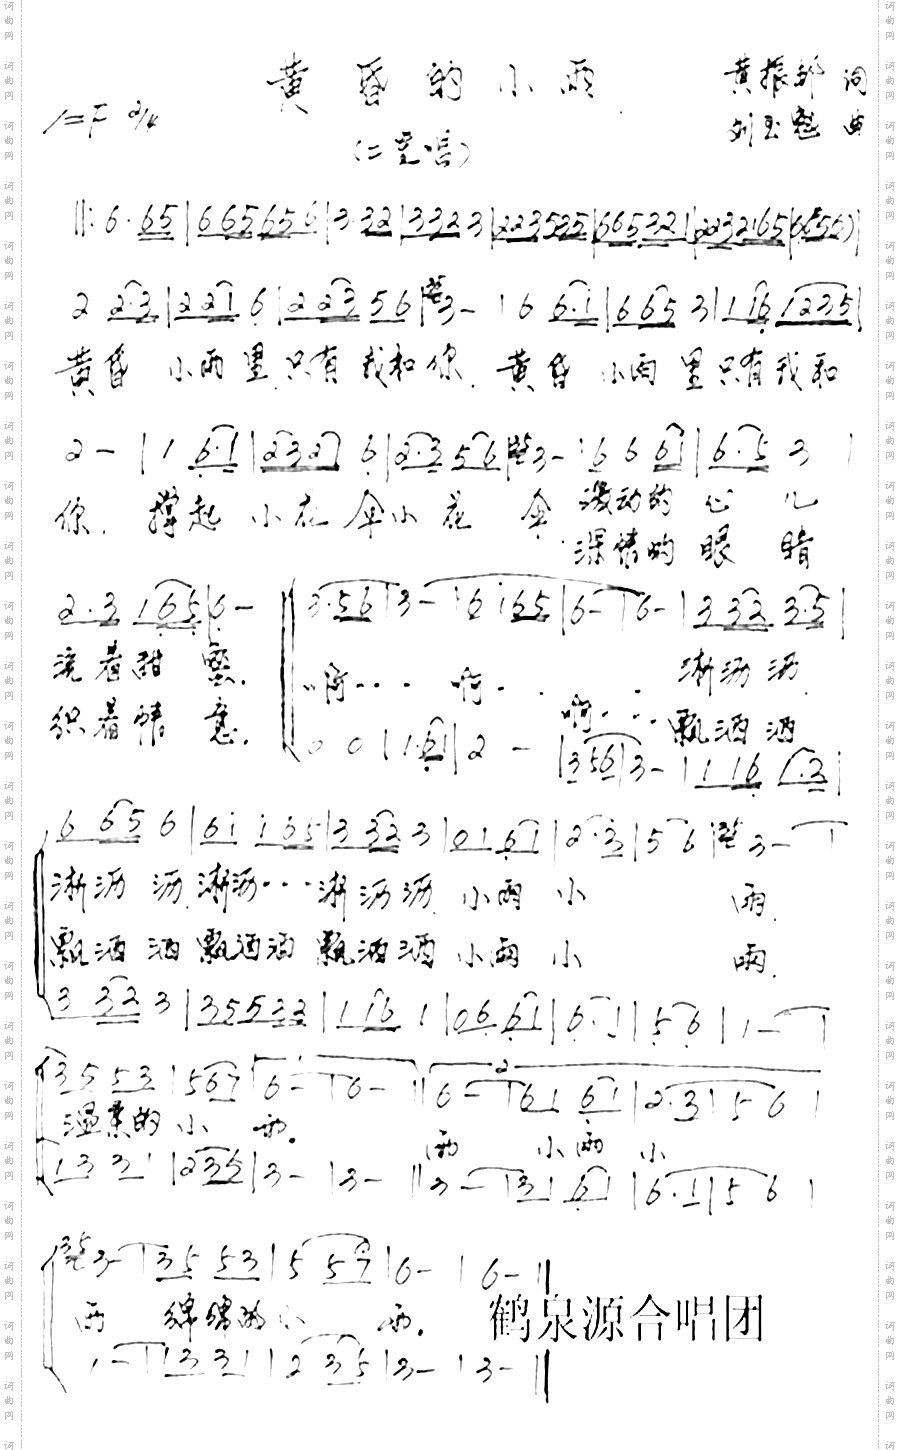 黄昏的小雨
黄振邦 词
1=F 2/4
刘玉魁 曲
(二重唱)
‖: 6· 65 | 665 656 | 3· 32 | 3323 | 223535 | 665321 | 2232165 | 6656) |
2 2·3 | 221 6 | 223 56 | 3- | 6 6·1 | 665 3 | 116 1235 |
黄昏 小雨里只有我和你. 黄昏 小雨里只有我和
2- | 1 6·1 | 232 6 | 2·3 56 | 3- | 6 6 61 | 6·5 3 |
你. 撑起 小花伞小花 伞. 滚动的 心儿
深情的 眼睛
2·3 165 | 6- | 3·56 | 3- | 6 165 | 6- | 6- | 332 3·5 |
流着甜蜜. 啊··· 啊··· 淅沥沥
织着情意. 啊··· 飘洒洒
0 0 | 1·61 | 2 - | 356 | 3- | 116 1·2 |
6 65 6 | 61 165 | 332 3 | 01 61 | 2·3 | 5 6 | 3- |
淅沥 沥 淅沥··· 淅沥沥 小雨 小 雨.
飘洒 洒 飘洒洒 飘洒洒 小雨 小 雨.
3 32 3 | 35532 | 116 1 | 06 61 | 6·1 | 5 6 | 1- |
35 53 | 567 | 6- | 6- ‖ 6- | 61 61 | 2·3 | 5 6 |
温柔的 小 雨. 雨 小雨 小
13 31 | 235 | 3- | 3- ‖ 3- | 31 61 | 6·1 | 5 6 |
35 3- | 35 53 | 5 57 | 6- | 6- ‖
雨 绵绵的小 雨.
鹤泉源合唱团
1- | 13 31 | 2 35 | 3- | 3- ‖
词曲网